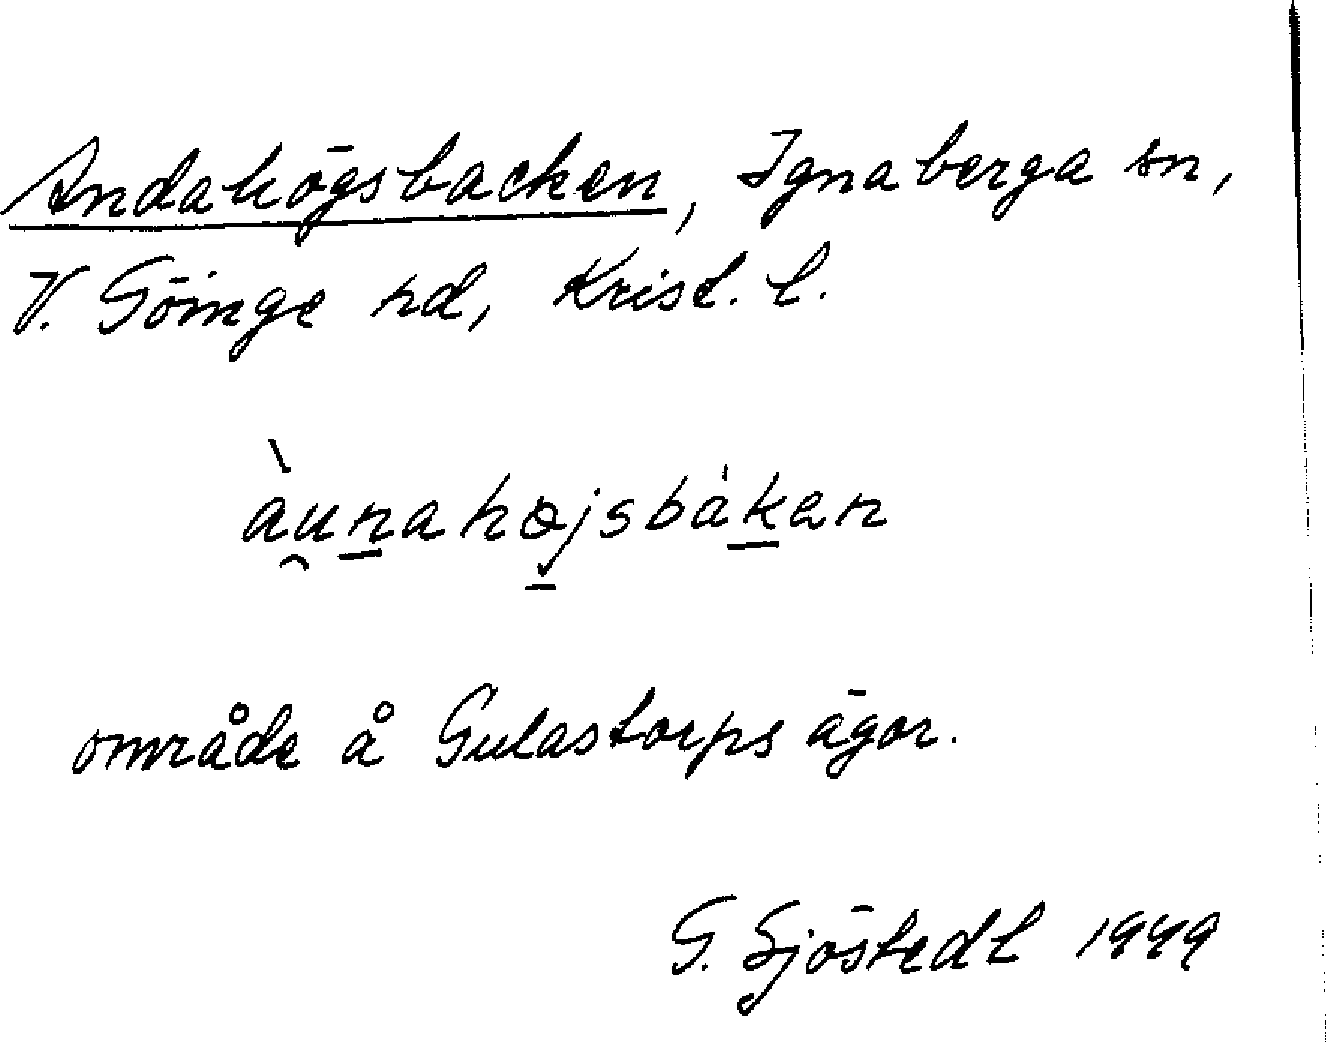 Andahögsbacken, Ignaberga sn,
V. Göinge hd, Krist. l.
àu̯n̲ahøjsbák̲an
område å Gulastorps ägor.
G. Sjöstedt 1949